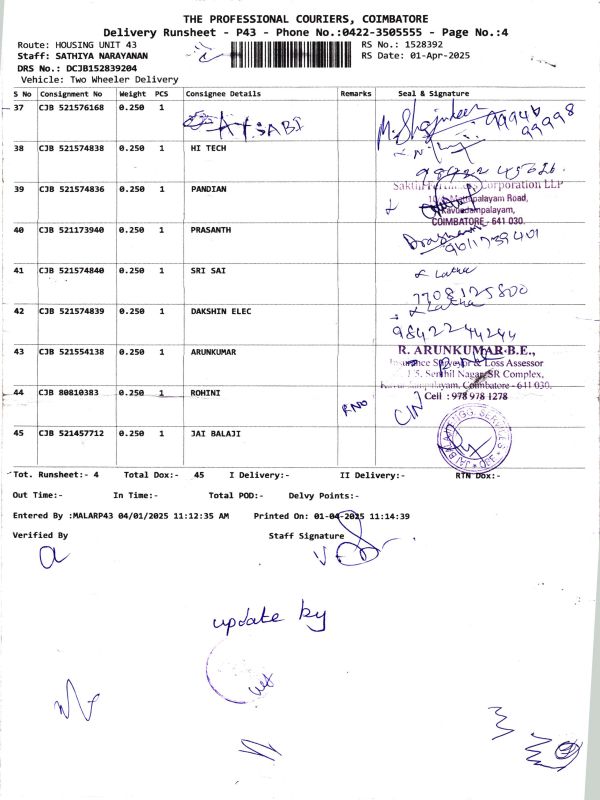 THE PROFESSIONAL COURIERS, COIMBATORE
Delivery Runsheet - P43 - Phone No.:0422-3505555 - Page No.:4
Route: HOUSING UNIT 43 RS No.: 1528392
Staff: SATHIYA NARAYANAN RS Date: 01-Apr-2025
DRS No.: DCJB152839204
Vehicle: Two Wheeler Delivery
S No Consignment No Weight PCS Consignee Details Remarks Seal & Signature
37 CJB 521576168 0.250 1
99946
99998
38 CJB 521574838 0.250 1 HI TECH
39 CJB 521574836 0.250 1 PANDIAN
Corporation LLP
Road,
Kavundampalayam,
COIMBATORE - 641 030.
40 CJB 521173940 0.250 1 PRASANTH
41 CJB 521574840 0.250 1 SRI SAI Latha
7708125800
42 CJB 521574839 0.250 1 DAKSHIN ELEC Latha
9842244244
43 CJB 521554138 0.250 1 ARUNKUMAR R. ARUNKUMAR B.E.,
Insurance Surveyor & Loss Assessor
Senthil Nagar, SR Complex,
Coimbatore - 641 030.
Cell : 978 978 1278
44 CJB 80810383 0.250 1 ROHINI RNO
45 CJB 521457712 0.250 1 JAI BALAJI
Tot. Runsheet:- 4 Total Dox:- 45 I Delivery:- II Delivery:- RTN Dox:-
Out Time:- In Time:- Total POD:- Delvy Points:-
Entered By :MALARP43 04/01/2025 11:12:35 AM Printed On: 01-04-2025 11:14:39
Verified By Staff Signature
update by